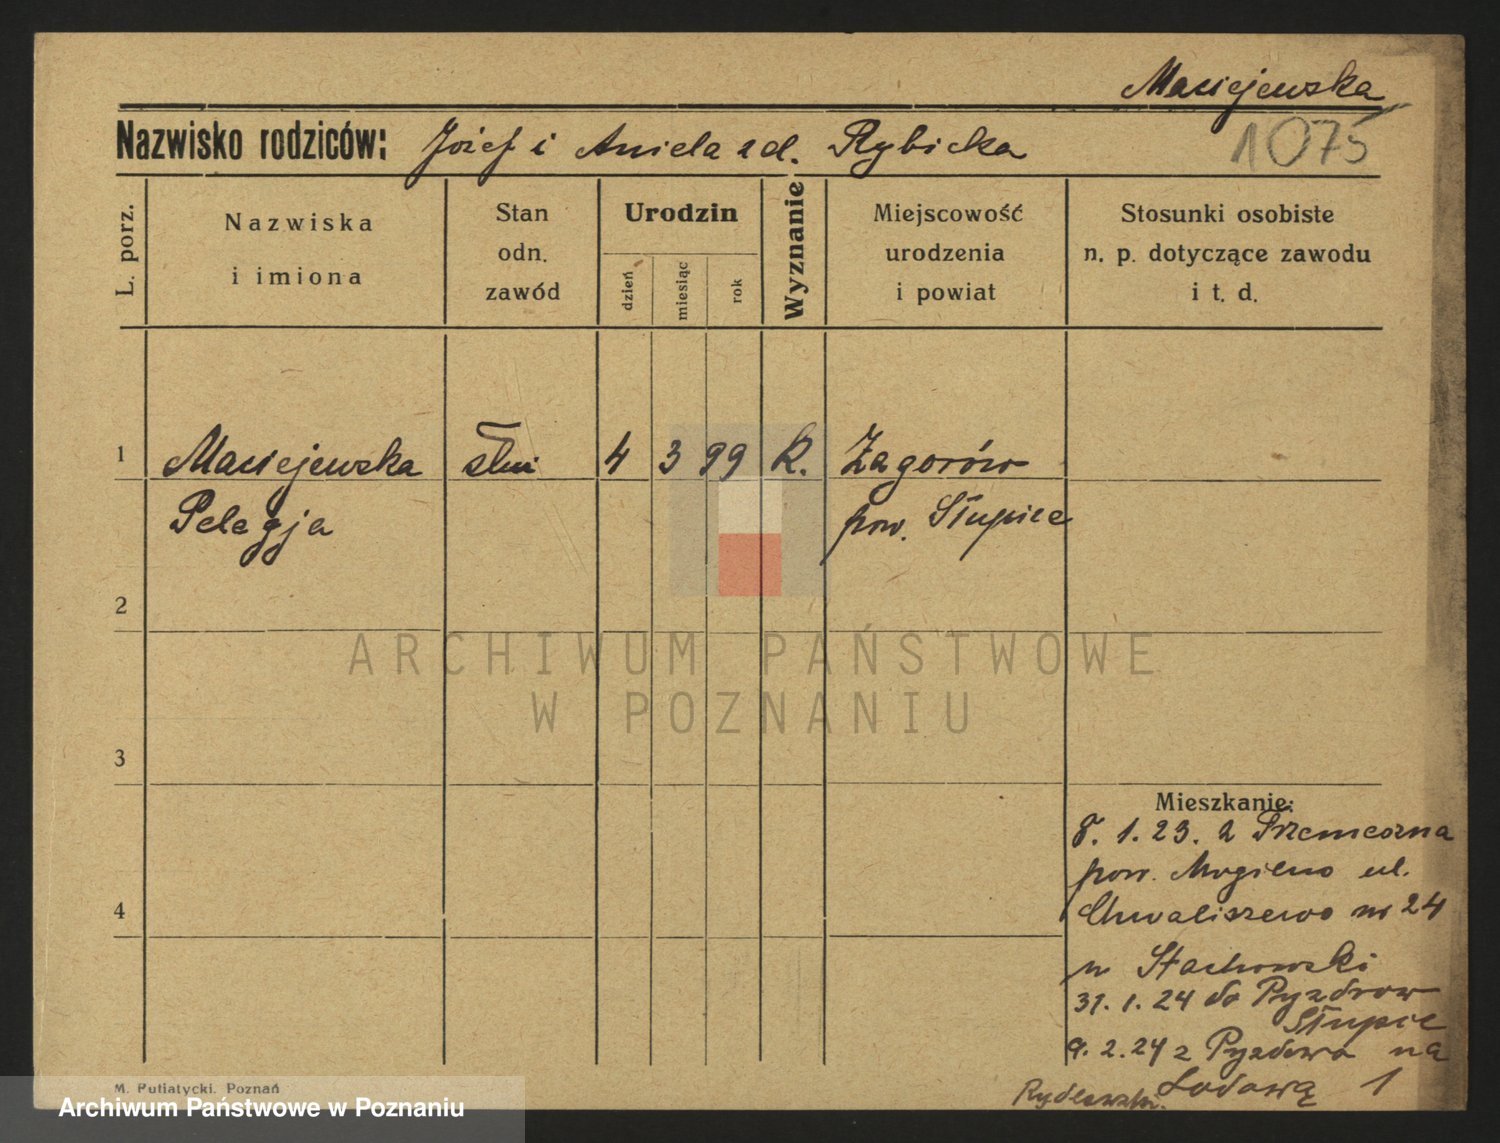 Maciejewska
Nazwisko rodziców: Józef i Aniela zd. Rybicka
1075
L. porz.
Nazwiska
i imiona
Stan
odn.
zawód
Urodzin
dzień
miesiąc
rok
Wyznanie
Miejscowość
urodzenia
i powiat
Stosunki osobiste
n. p. dotyczące zawodu
i t. d.
1 Maciejewska służ 4 3 99 K. Zagorów
Pelagja pow. Słupice
2
ARCHIWUM PAŃSTWOWE
W POZNANIU
3
Mieszkanie:
8. 1. 23. z
pow. Mogilno ul.
4
Chwaliszewo nr 24
u Stachowski
31. 1. 24 do Pyzdrow
Słupce
9. 2. 24 z Pyzdrowa na
Rydlewski. Łodową 1
M. Putiatycki. Poznań
Archiwum Państwowe w Poznaniu